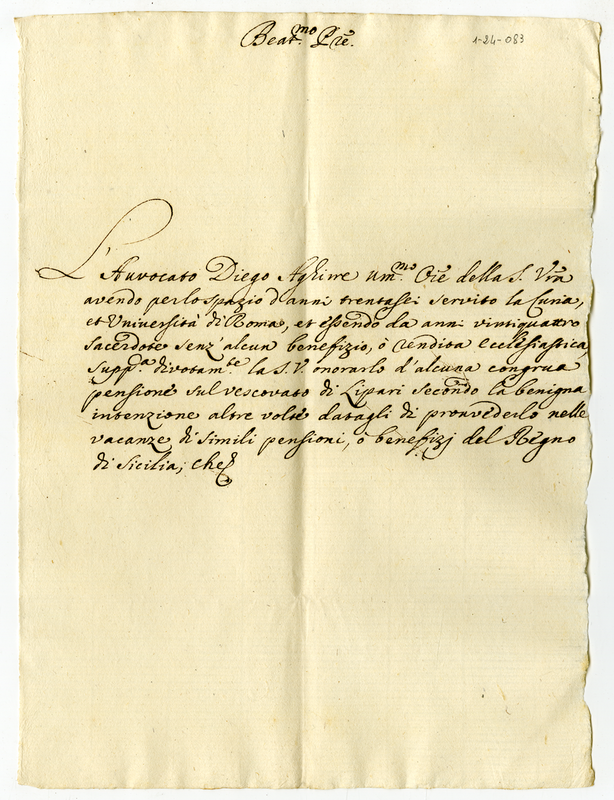 Beat.mo Pre.
1-24-083
L'Auvocato Diego Aghirre um.mo Ore della S. Vra
avendo per lo spazio d'anni trentasei servito la Curia,
et Università di Roma, et essendo da anni vintiquattro
sacerdote senz'alcun benefizio, ò rendita ecclesiastica,
supp.a divotam.te la S.V. onorarlo d'alcuna congrua
pensione sul vescovato di Lipari secondo la benigna
intenzione altre volte datagli di provvederlo nelle
vacanze di simili pensioni, ò benefizj del Regno
di Sicilia; che